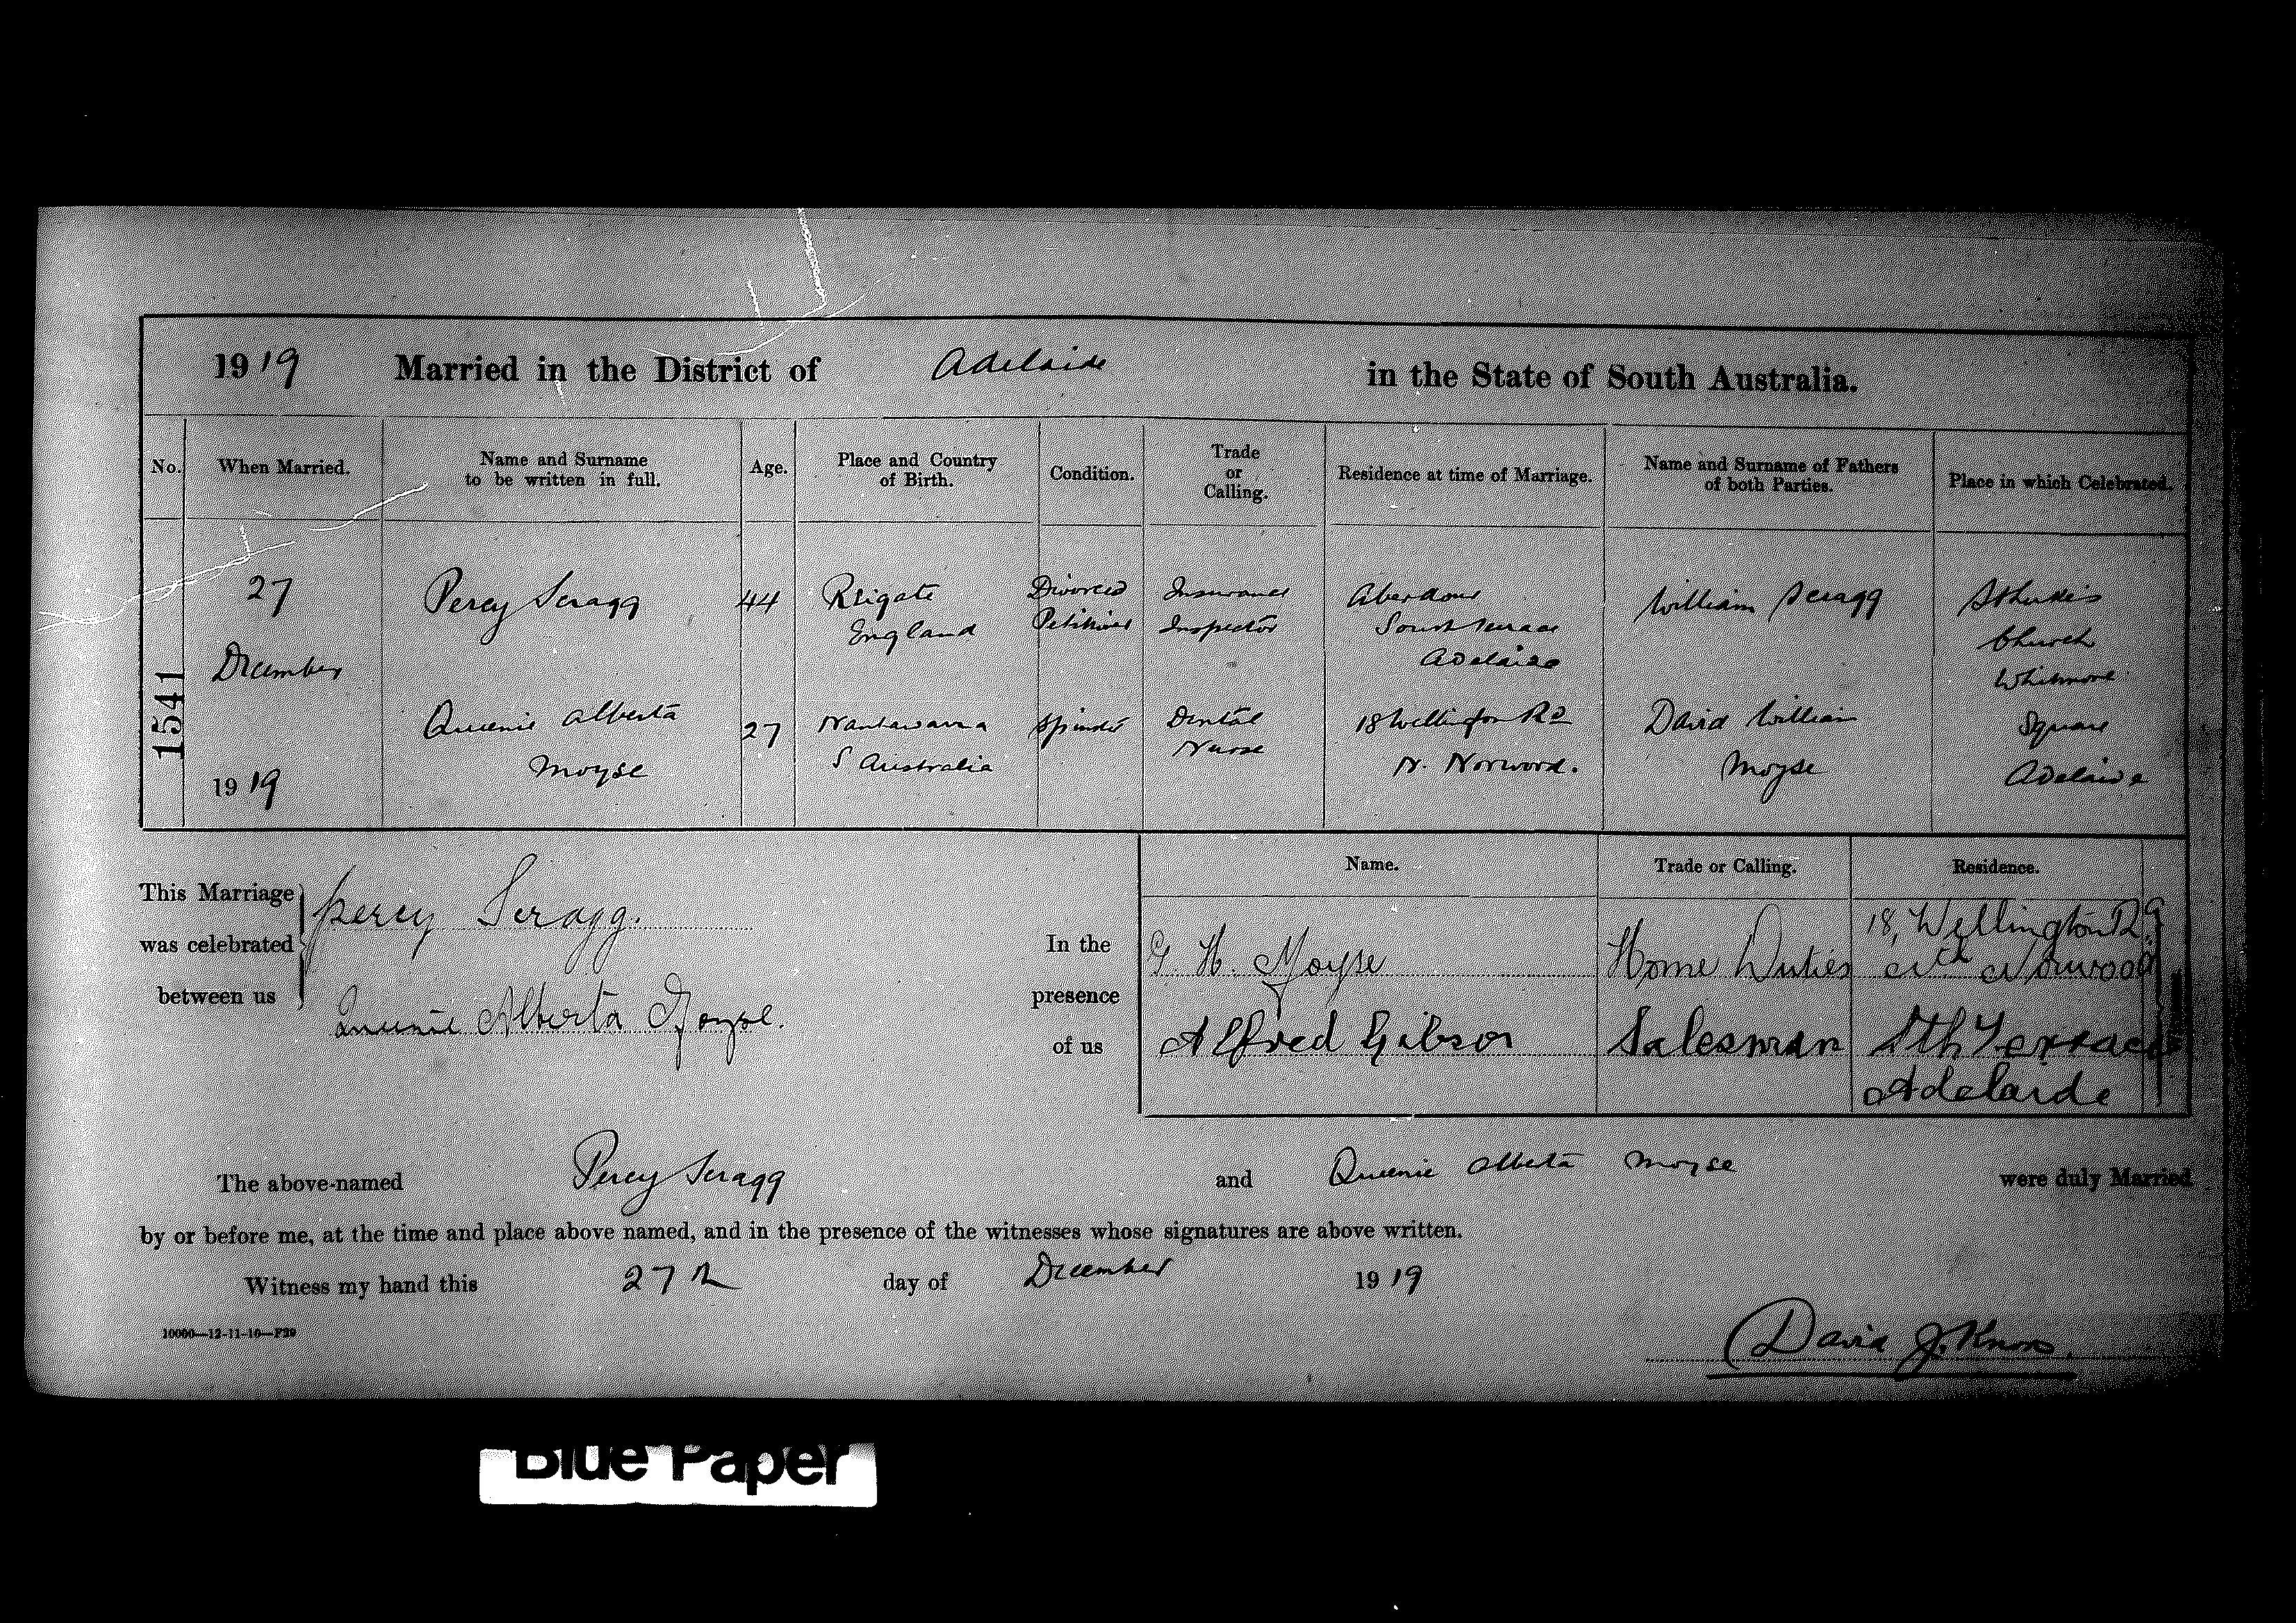 1919 Married in the District of Adelaide in the State of South Australia.
No. When Married. Name and Surname to be written in full. Age. Place and Country of Birth. Condition. Trade or Calling. Residence at time of Marriage. Name and Surname of Fathers of both Parties. Place in which Celebrated.
1541
27
December
1919
Percy Scragg
44
Reigate
England
Divorced
Petitioner
Insurance
Inspector
Aberdour
South Terrace
Adelaide
William Scragg
St Lukes
Church
Whitmore
Square
Adelaide
Queenie Alberta
Moyse
27
Nantawarra
S Australia
Spinster
Dental
Nurse
18 Wellington Rd
N. Norwood.
David William
Moyse
This Marriage
was celebrated
between us
Percy Scragg.
Queenie Alberta Moyse.
In the
presence
of us
Name. Trade or Calling. Residence.
G H. Moyse Home Duties 18, Wellington Rd
Nth Norwood
Alfred Gibson Salesman Sth Terrace
Adelaide
The above-named Percy Scragg and Queenie Alberta Moyse were duly Married
by or before me, at the time and place above named, and in the presence of the witnesses whose signatures are above written.
Witness my hand this 27th day of December 1919
10000—12-11-10—F29
David J. Knox.
Blue Paper